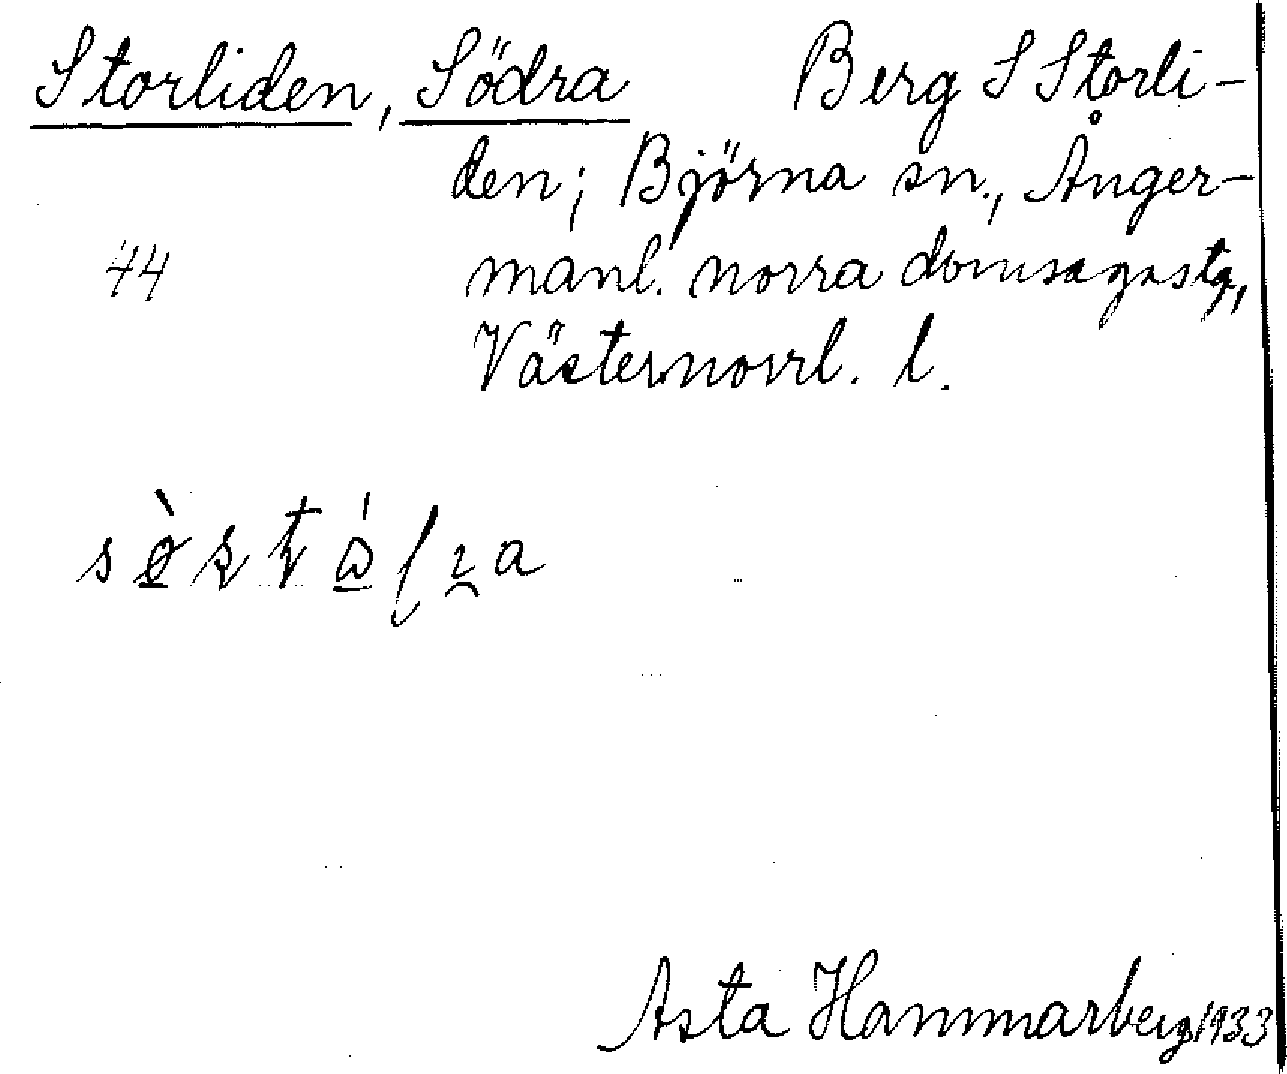 Storliden, Södra Berg S Storli-
den; Björna sn., Ånger-
44 manl. norra domsagastg,
Västernorrl. l.
Asta Hammarberg 1933